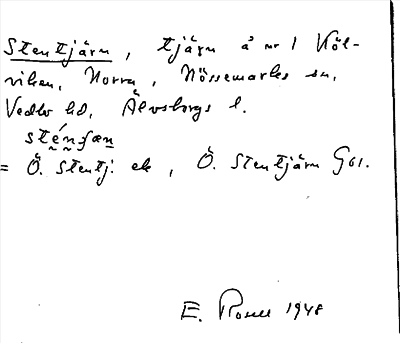 Stentjärn, tjärn å nr 1 Köl-
viken, Norra, Nössemarks sn,
Vedbo hd, Älvsborgs l.
sténʃæn
= Ö. Stentj. ek, Ö. Stentjärn Gsl.
E. Rosell 1948